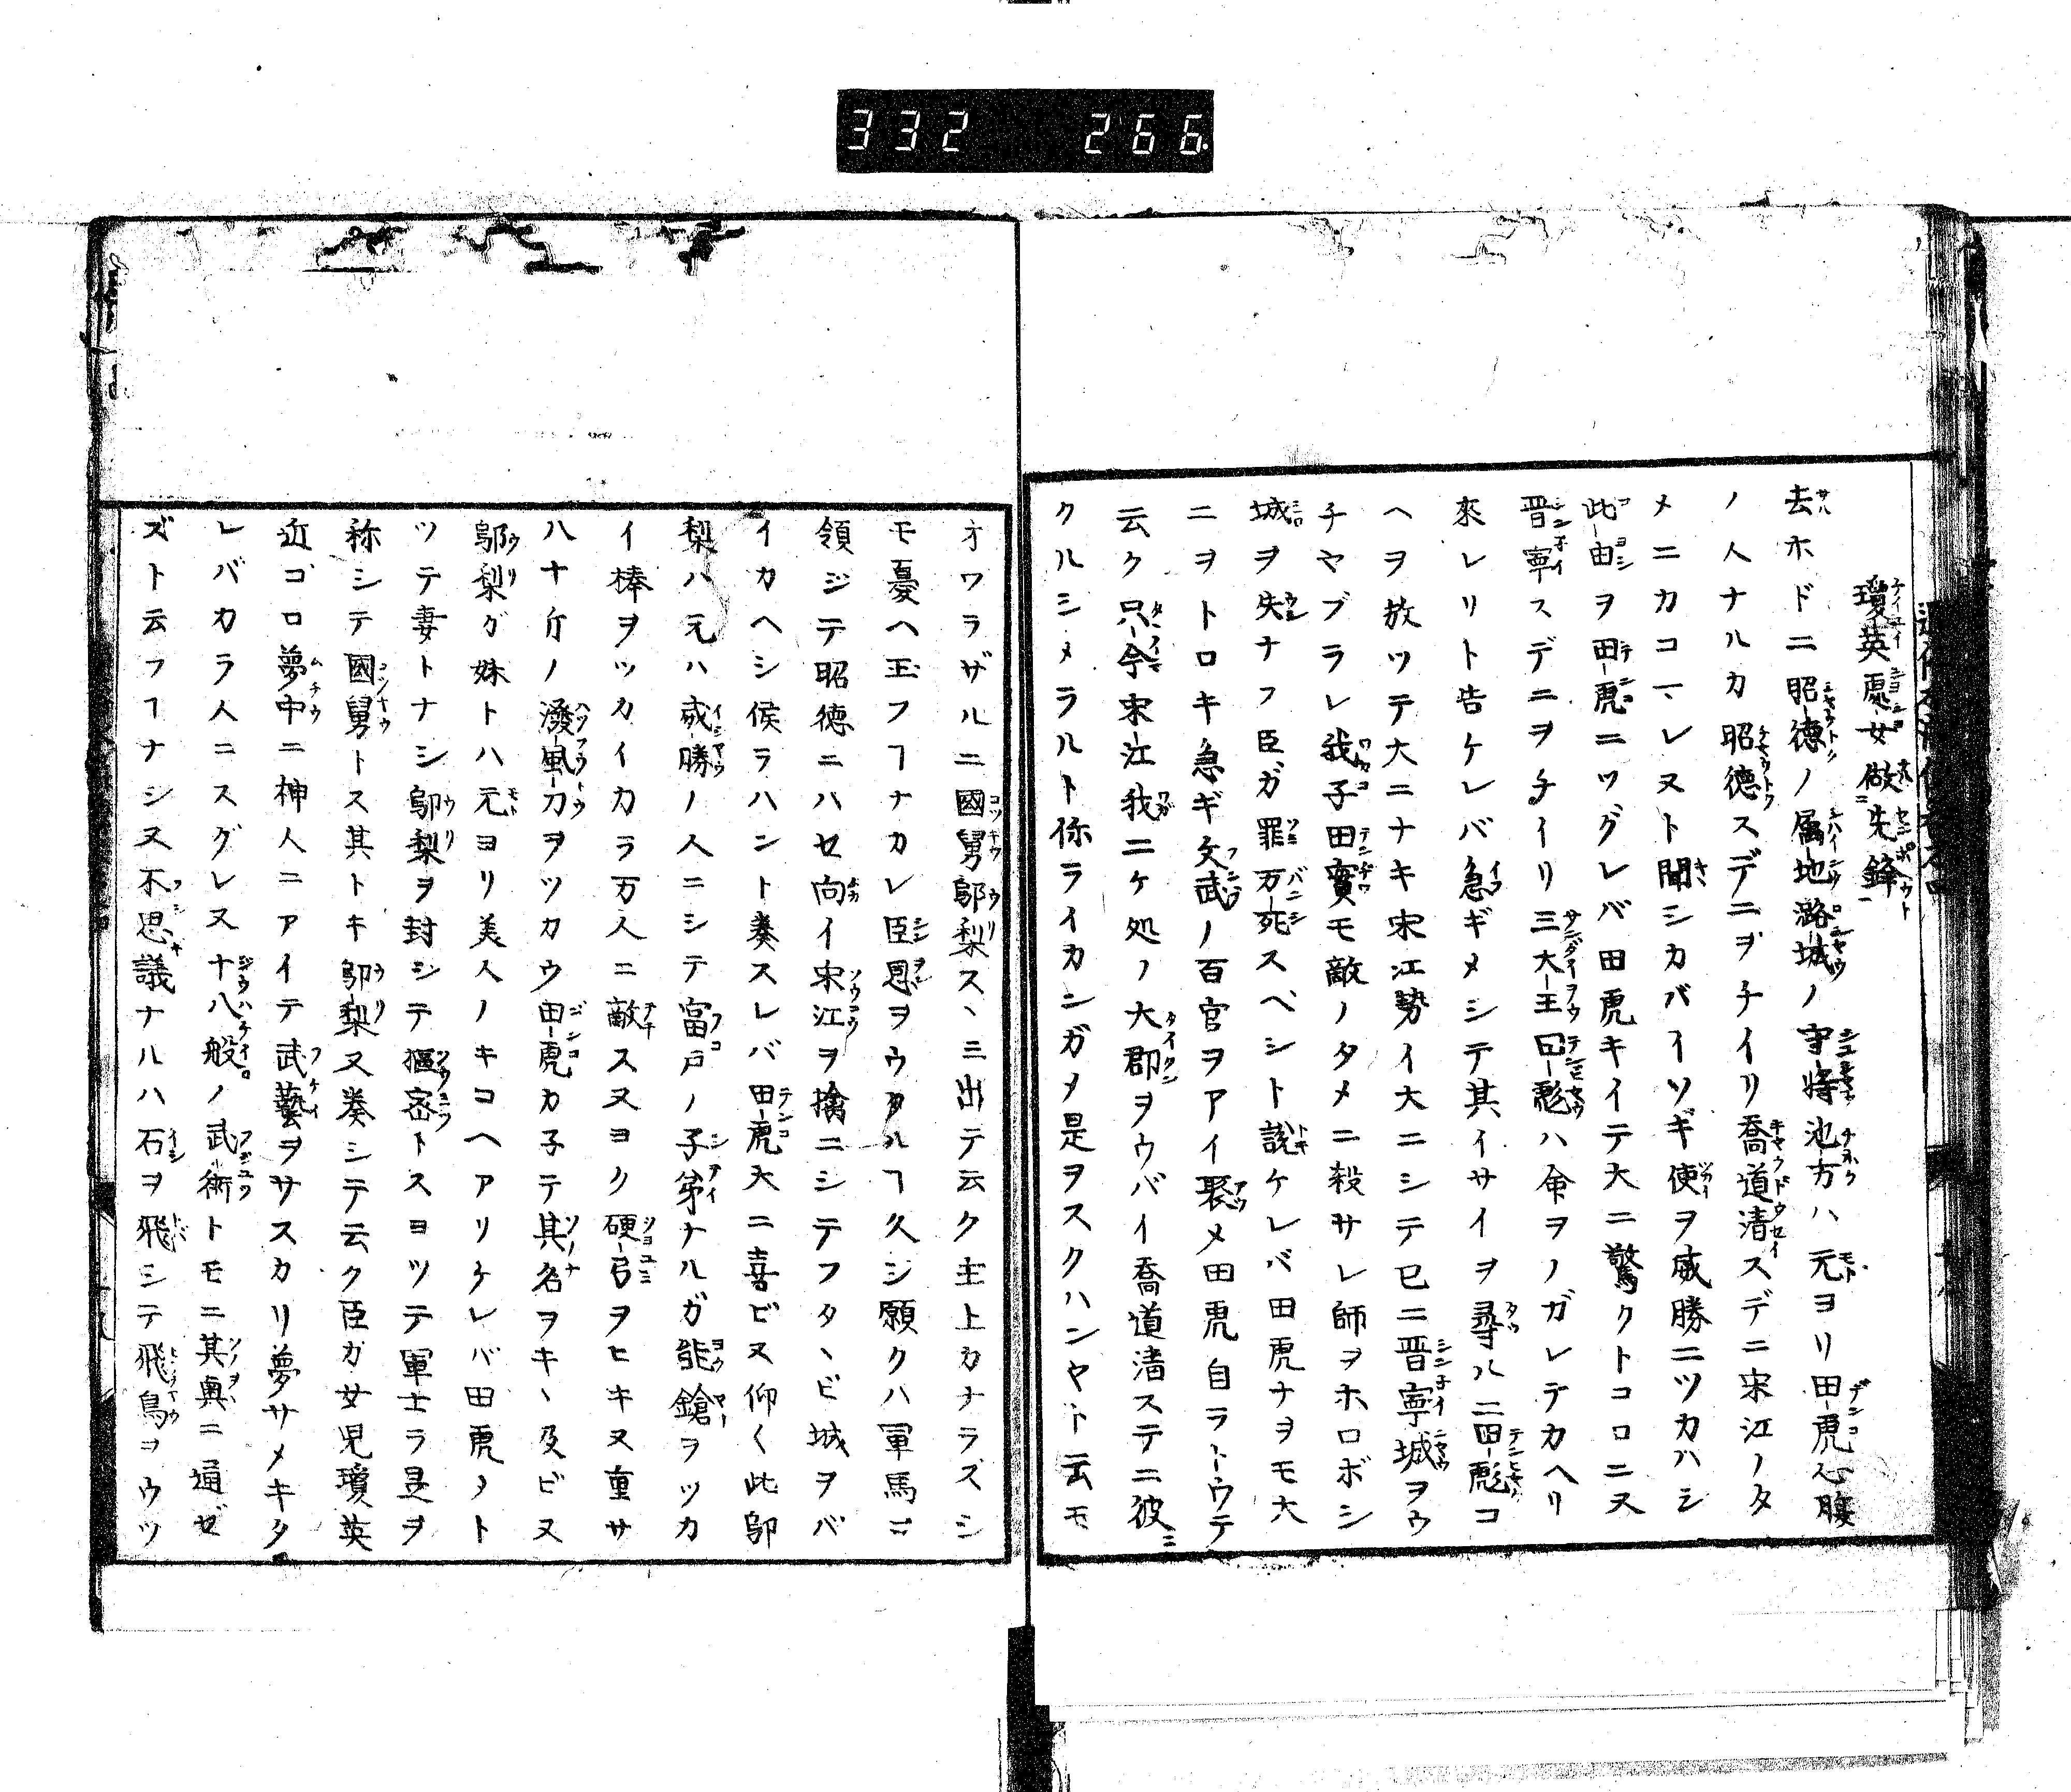 332 266
瓊英處女做先鋒
去ホドニ昭德ノ属地潞城ノ守將池方ハ元ヨリ田虎心腹
ノ人ナルカ昭德スデニヲチイリ喬道清スデニ宋江ノタ
メニカコマレヌト聞シカバイソギ使ヲ威勝ニツカハシ
此由ヲ田虎ニツグレバ田虎キイテ大ニ驚クトコロニ又
晋寧スデニヲチイリ三大王田彪ハ命ヲノガレテカヘリ
來レリト告ケレバ急ギメシテ其イサイヲ尋ルニ田彪コ
ヘヲ放ツテ大ニナキ宋江勢イ大ニシテ已ニ晋寧城ヲウ
チヤブラレ我子田實モ敵ノタメニ殺サレ師ヲホロボシ
城ヲ失ナフ臣ガ罪万死スベシト説ケレバ田虎ナヲモ大
ニヲトロキ急ギ文武ノ百官ヲアイ聚メ田虎自ラトウテ
云ク只今宋江我ニケ処ノ大郡ヲウバイ喬道清ステニ彼ニ
クルシメラルト你ライカンガメ是ヲスクハンヤト云モ
オワラザルニ國舅鄔梨スヽミ出テ云ク主上カナラズシ
モ憂ヘ玉フヿナカレ臣恩ヲウクルヿ久シ願クハ軍馬ヲ
領ジテ昭德ニハセ向イ宋江ヲ擒ニシテフタヽビ城ヲバ
イカヘシ侯ラハント奏スレバ田虎大ニ喜ビヌ仰〱此鄔
梨ハ元ハ威勝ノ人ニシテ富戸ノ子弟ナルガ能鎗ヲツカ
イ棒ヲツカイカラ万人ニ敵ス又ヨク硬弓ヲヒキ又重サ
八十斤ノ潑風刀ヲツカウ田虎カ子テ其名ヲキヽ及ビヌ
鄔梨ガ妹トハ元ヨリ美人ノキコヘアリケレバ田虎メト
ツテ妻トナシ鄔梨ヲ封シテ樞密トスヨツテ軍士ラ是ヲ
称シテ國舅トス其トキ鄔梨又奏シテ云ク臣ガ女児瓊英
近ゴロ夢中ニ神人ニアイテ武藝ヲサスカリ夢サメキタ
レバカラ人ニスグレヌ十八般ノ武術トモニ其奥ニ通ゼ
ズト云フヿナシ又不思議ナルハ石ヲ飛シテ飛鳥ヲウツ